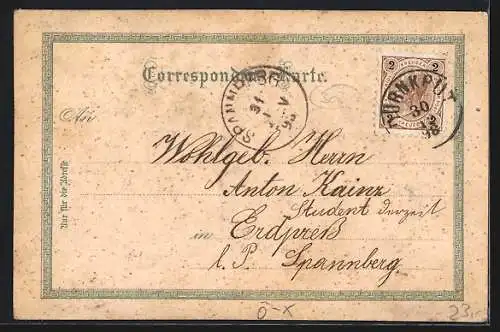 Correspondenz-Karte.
2 2
DÜRNKRUT
30
12
98
SPANNBERG
31
98
An
Wohlgeb. Herrn
Anton Kainz
Student derzeit
in Erdpreß
l. P. Spannberg.
Nur für die Adresse
Ö-K
23.-